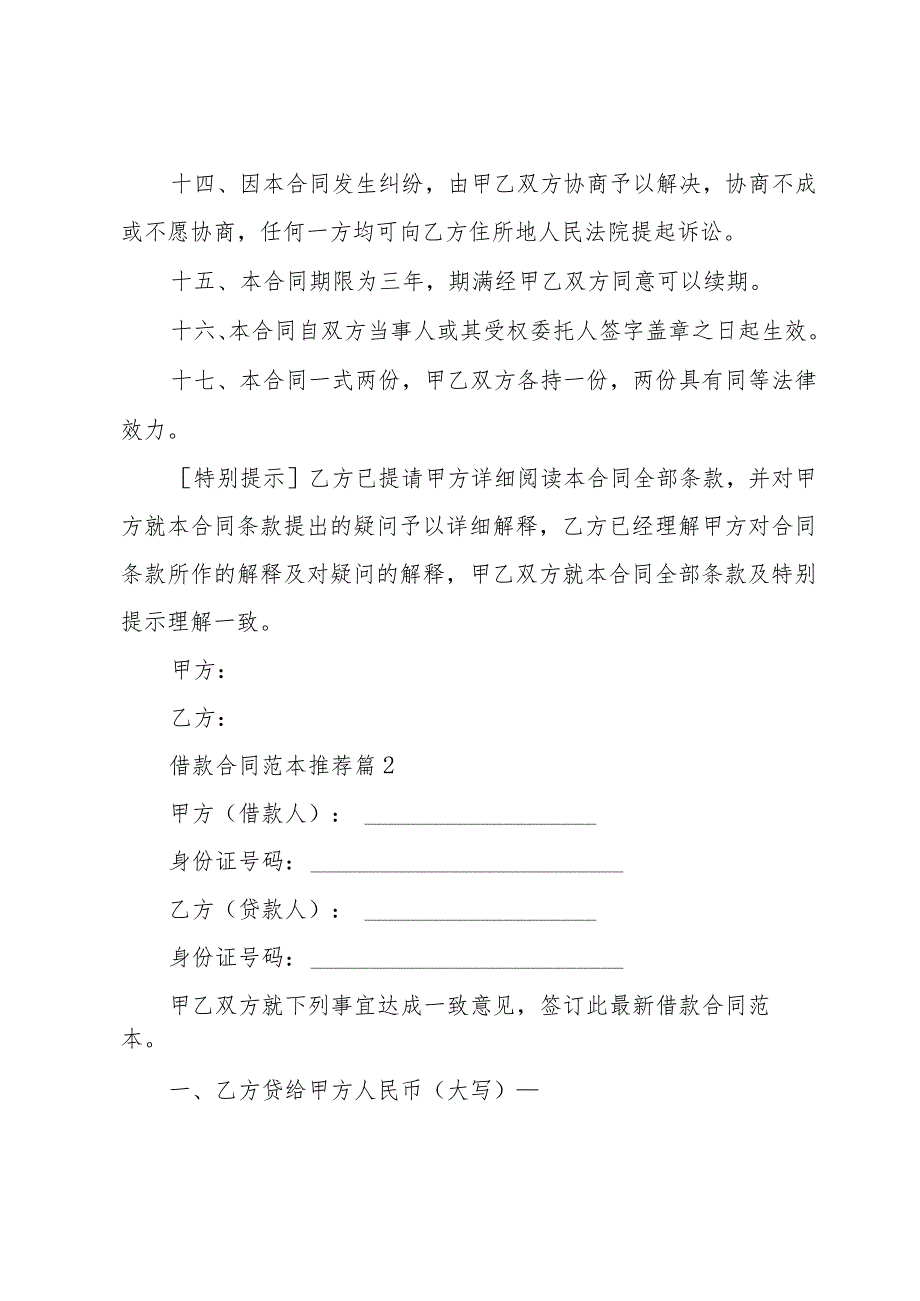 十四、因本合同发生纠纷，由甲乙双方协商予以解决，协商不成
或不愿协商，任何一方均可向乙方住所地人民法院提起诉讼。
十五、本合同期限为三年，期满经甲乙双方同意可以续期。
十六、本合同自双方当事人或其受权委托人签字盖章之日起生效。
十七、本合同一式两份，甲乙双方各持一份，两份具有同等法律
效力。
［特别提示］乙方已提请甲方详细阅读本合同全部条款，并对甲
方就本合同条款提出的疑问予以详细解释，乙方已经理解甲方对合同
条款所作的解释及对疑问的解释，甲乙双方就本合同全部条款及特别
提示理解一致。
甲方：
乙方：
借款合同范本推荐篇2
甲方（借款人）： ____________________
身份证号码：___________________________
乙方（贷款人）： ____________________
身份证号码：___________________________
甲乙双方就下列事宜达成一致意见，签订此最新借款合同范
本。
一、乙方贷给甲方人民币（大写）—